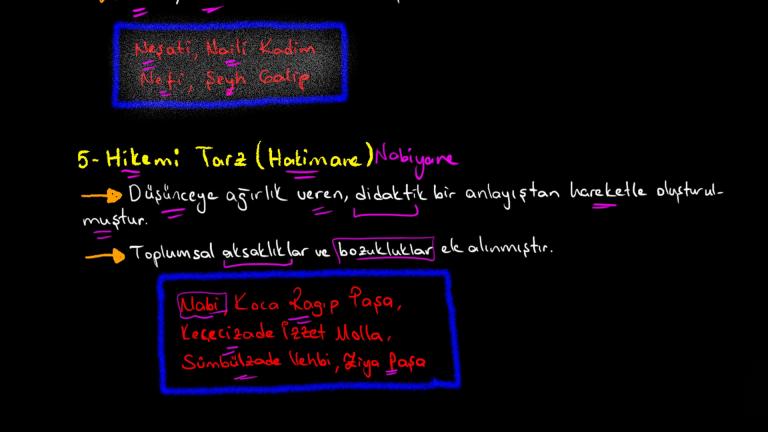 Neşati, Naili Kadim
Nefi, Şeyh Galip
5- Hikemi Tarz (Hakimane) Nabiyane
→ Düşünceye ağırlık veren, didaktik bir anlayıştan hareketle oluşturul-
muştur.
→ Toplumsal aksaklıklar ve bozukluklar ele alınmıştır.
Nabi, Koca Ragıp Paşa,
Keçecizade İzzet Molla,
Sümbülzade Vehbi, Ziya Paşa